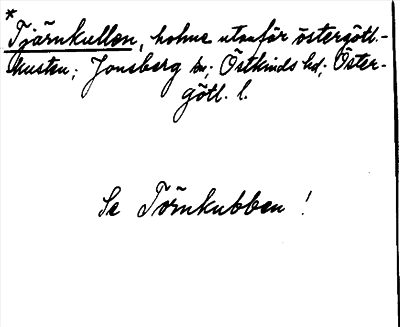 *
Tjärnkullen, holme utanför östergötl.-
kusten; Jonsberg sn; Östkinds hd; Öster-
götl. l.
Se Törnkubben !